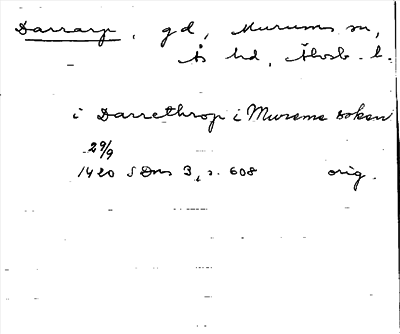 Darrarp, gd, Murums sn,
Ås hd, Älvsb. l.
i Darrethrop i Murema soken
29/9
1420 SDns 3, s. 608 orig.